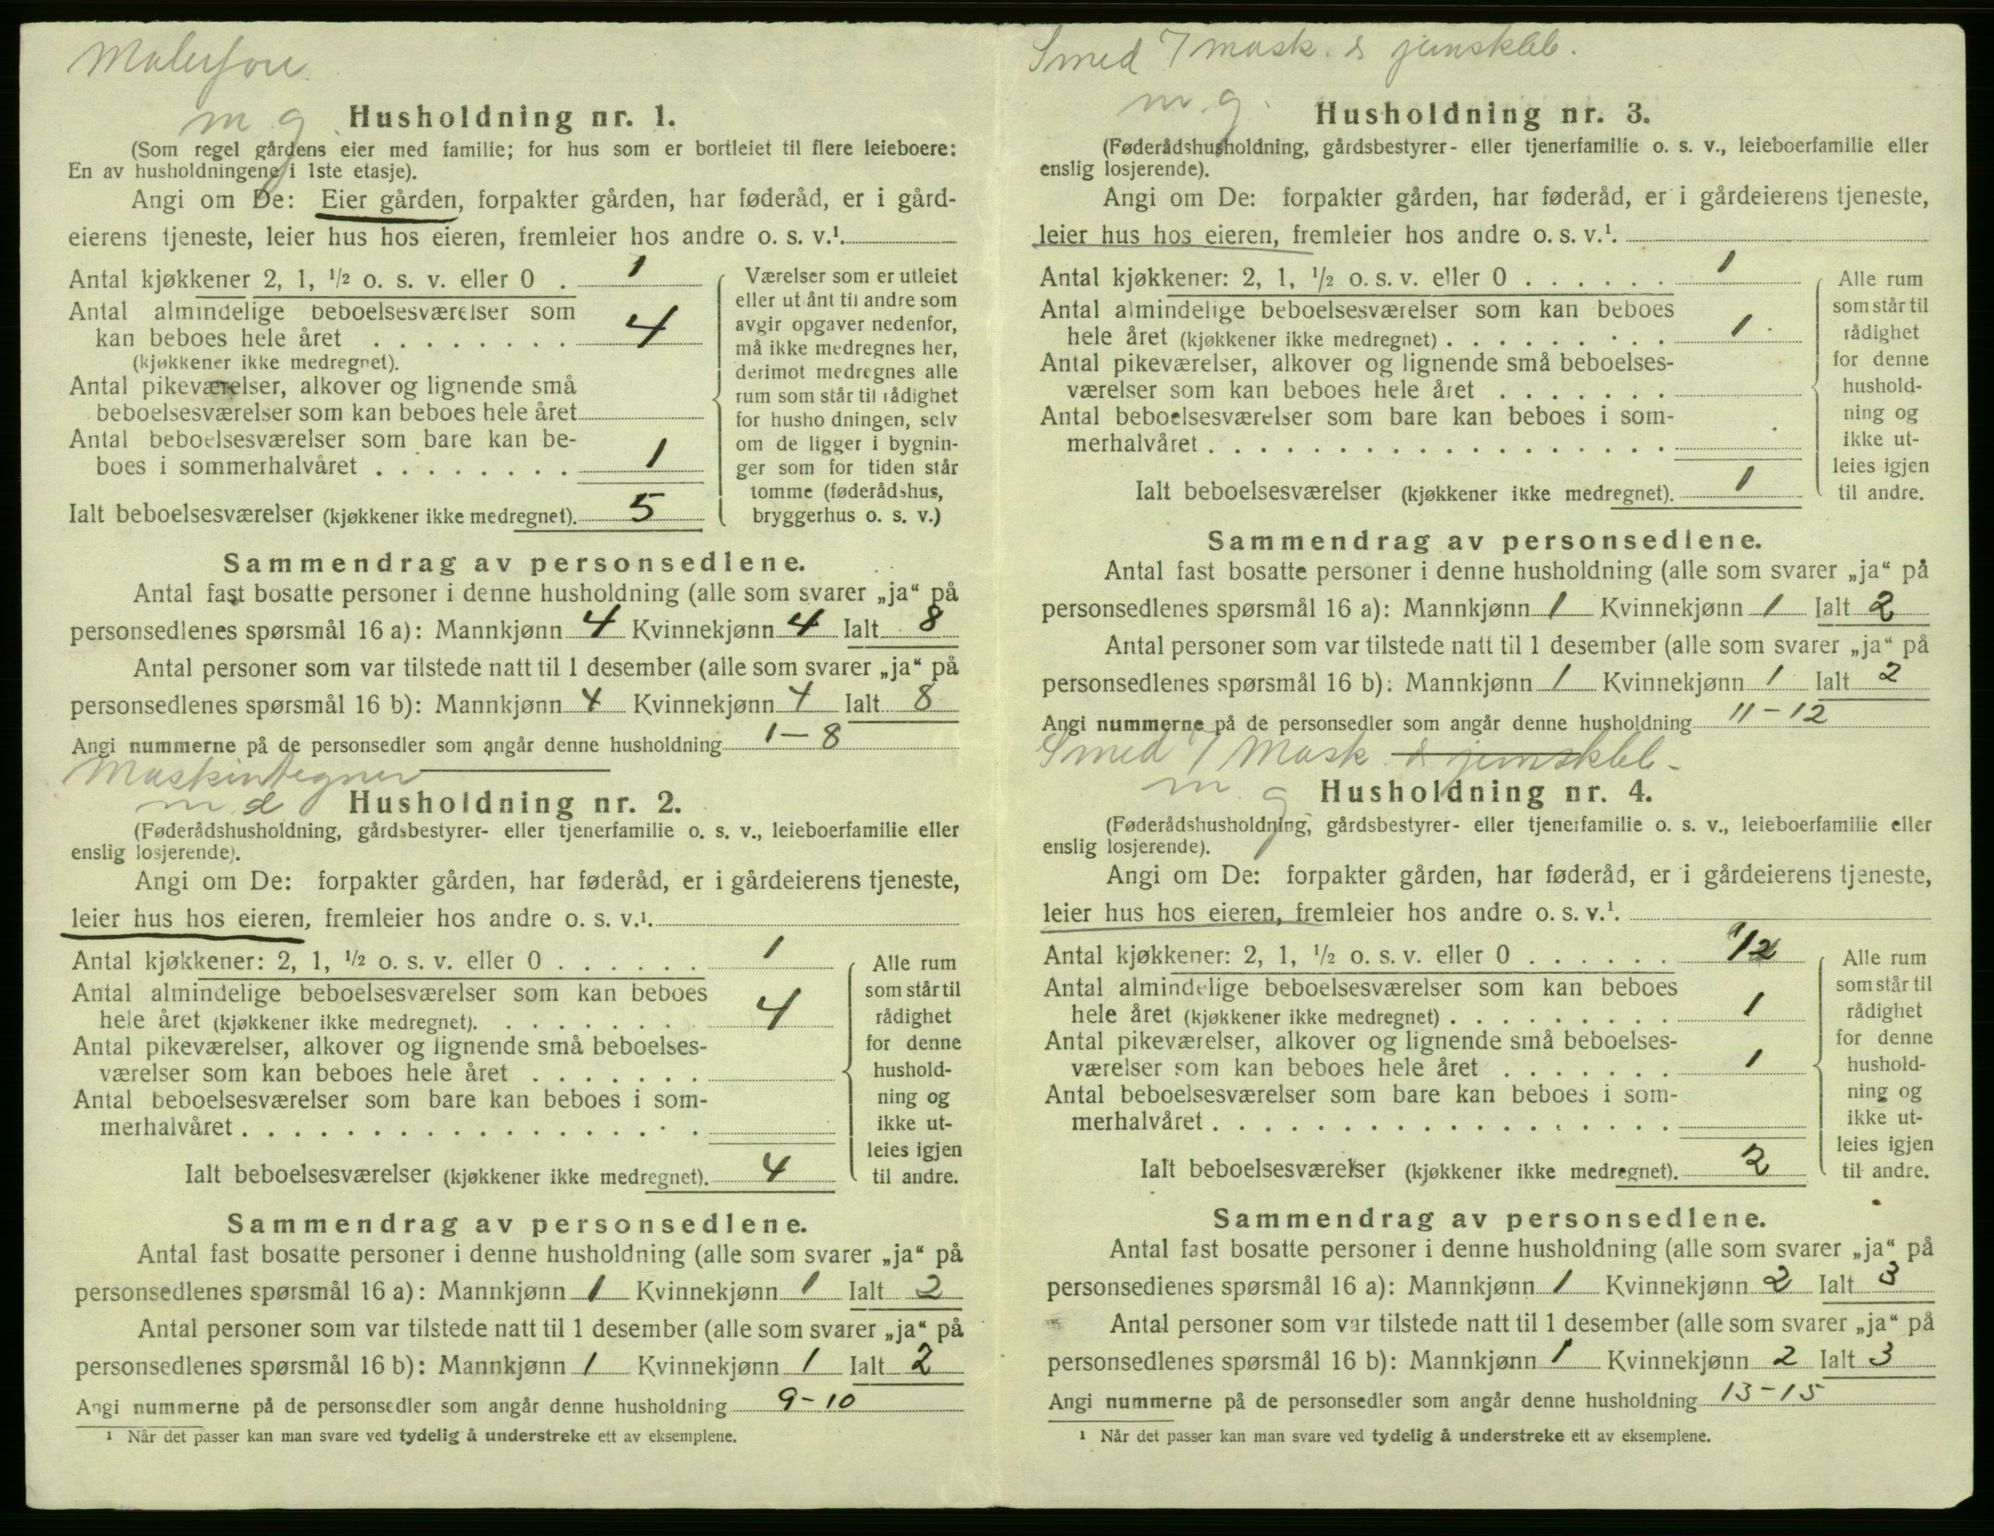 Malerforr.
m. g. Husholdning nr. 1.
(Som regel gårdens eier med familie; for hus som er bortleiet til flere leieboere:
En av husholdningene i 1ste etasje).
Angi om De: Eier gården, forpakter gården, har føderåd, er i gård-
eierens tjeneste, leier hus hos eieren, fremleier hos andre o. s. v.¹.
Antal kjøkkener 2, 1, 1/2 o. s. v. eller 0 . 1
Antal almindelige beboelsesværelser som
kan beboes hele året . . . . . . . . 4
(kjøkkener ikke medregnet).
Antal pikeværelser, alkover og lignende små
beboelsesværelser som kan beboes hele året
Antal beboelsesværelser som bare kan be-
boes i sommerhalvåret . . . . . . . . 1
Ialt beboelsesværelser (kjøkkener ikke medregnet). 5
Værelser som er utleiet
eller ut ånt til andre som
avgir opgaver nedenfor,
må ikke medregnes her,
derimot medregnes alle
rum som står til rådighet
for husho dningen, selv
om de ligger i bygnin-
ger som for tiden står
tomme (føderådshus,
bryggerhus o. s. v.)
Sammendrag av personsedlene.
Antal fast bosatte personer i denne husholdning (alle som svarer „ja“ på
personsedlenes spørsmål 16 a): Mannkjønn 4 Kvinnekjønn 4 Ialt 8
Antal personer som var tilstede natt til 1 desember (alle som svarer „ja“ på
personsedlenes spørsmål 16 b): Mannkjønn 4 Kvinnekjønn 4 Ialt 8
Angi nummerne på de personsedler som angår denne husholdning 1 – 8
Maskintegner
m d Husholdning nr. 2.
(Føderådshusholdning, gårdsbestyrer- eller tjenerfamilie o. s. v., leieboerfamilie eller
enslig losjerende).
Angi om De: forpakter gården, har føderåd, er i gårdeierens tjeneste,
leier hus hos eieren, fremleier hos andre o. s. v.¹.
Antal kjøkkener: 2, 1, 1/2 o. s. v. eller 0 . . . . . . 1
Antal almindelige beboelsesværelser som kan beboes
hele året (kjøkkener ikke medregnet). . . . . . . . . 4
Antal pikeværelser, alkover og lignende små beboelses-
værelser som kan beboes hele året . . . . . . .
Antal beboelsesværelser som bare kan beboes i som-
merhalvåret . . . . . . . . . . . . . . . . . .
Ialt beboelsesværelser (kjøkkener ikke medregnet). 4
Alle rum
som står til
rådighet
for denne
hushold-
ning og
ikke ut-
leies igjen
til andre.
Sammendrag av personsedlene.
Antal fast bosatte personer i denne husholdning (alle som svarer „ja“ på
personsedlenes spørsmål 16 a): Mannkjønn 1 Kvinnekjønn 1 Ialt 2
Antal personer som var tilstede natt til 1 desember (alle som svarer „ja“ på
personsedlenes spørsmål 16 b): Mannkjønn 1 Kvinnekjønn 1 Ialt 2
Angi nummerne på de personsedler som angår denne husholdning 9 – 10
¹ Når det passer kan man svare ved tydelig å understreke ett av eksemplene.
Smed / mask. & jernskbb.
m. g. Husholdning nr. 3.
(Føderådshusholdning, gårdsbestyrer- eller tjenerfamilie o. s. v., leieboerfamilie eller
enslig losjerende).
Angi om De: forpakter gården, har føderåd, er i gårdeierens tjeneste,
leier hus hos eieren, fremleier hos andre o. s. v.¹.
Antal kjøkkener: 2, 1, 1/2 o. s. v. eller 0 . . . . . . 1
Antal almindelige beboelsesværelser som kan beboes
hele året (kjøkkener ikke medregnet) . . . . . . . . . 1
Antal pikeværelser, alkover og lignende små beboelses-
værelser som kan beboes hele året . . . . . . .
Antal beboelsesværelser som bare kan beboes i som-
merhalvåret . . . . . . . . . . . . . . . . . .
Ialt beboelsesværelser (kjøkkener ikke medregnet). 1
Alle rum
som står til
rådighet
for denne
hushold-
ning og
ikke ut-
leies igjen
til andre.
Sammendrag av personsedlene.
Antal fast bosatte personer i denne husholdning (alle som svarer „ja“ på
personsedlenes spørsmål 16 a): Mannkjønn 1 Kvinnekjønn 1 Ialt 2
Antal personer som var tilstede natt til 1 desember (alle som svarer „ja“ på
personsedlenes spørsmål 16 b): Mannkjønn 1 Kvinnekjønn 1 Ialt 2
Angi nummerne på de personsedler som angår denne husholdning 11 – 12
Smed / Mask. & jernskbb.
m. g Husholdning nr. 4.
(Føderådshusholdning, gårdsbestyrer- eller tjenerfamilie o. s. v., leieboerfamilie eller
enslig losjerende).
Angi om De: forpakter gården, har føderåd, er i gårdeierens tjeneste,
leier hus hos eieren, fremleier hos andre o. s. v.¹.
Antal kjøkkener: 2, 1, 1/2 o. s. v. eller 0 . . . . . . 1/2
Antal almindelige beboelsesværelser som kan beboes
hele året (kjøkkener ikke medregnet) . . . . . . . . . 1
Antal pikeværelser, alkover og lignende små beboelses-
værelser som kan beboes hele året . . . . . . . 1
Antal beboelsesværelser som bare kan beboes i som-
merhalvåret . . . . . . . . . . . . . . . . . .
Ialt beboelsesværelser (kjøkkener ikke medregnet). 2
Alle rum
som står til
rådighet
for denne
hushold-
ning og
ikke ut-
leies igjen
til andre.
Sammendrag av personsedlene.
Antal fast bosatte personer i denne husholdning (alle som svarer „ja“ på
personsedlenes spørsmål 16 a): Mannkjønn 1 Kvinnekjønn 2 Ialt 3
Antal personer som var tilstede natt til 1 desember (alle som svarer „ja“ på
personsedlenes spørsmål 16 b): Mannkjønn 1 Kvinnekjønn 2 Ialt 3
Angi nummerne på de personsedler som angår denne husholdning 13 – 15
¹ Når det passer kan man svare ved tydelig å understreke ett av eksemplene.